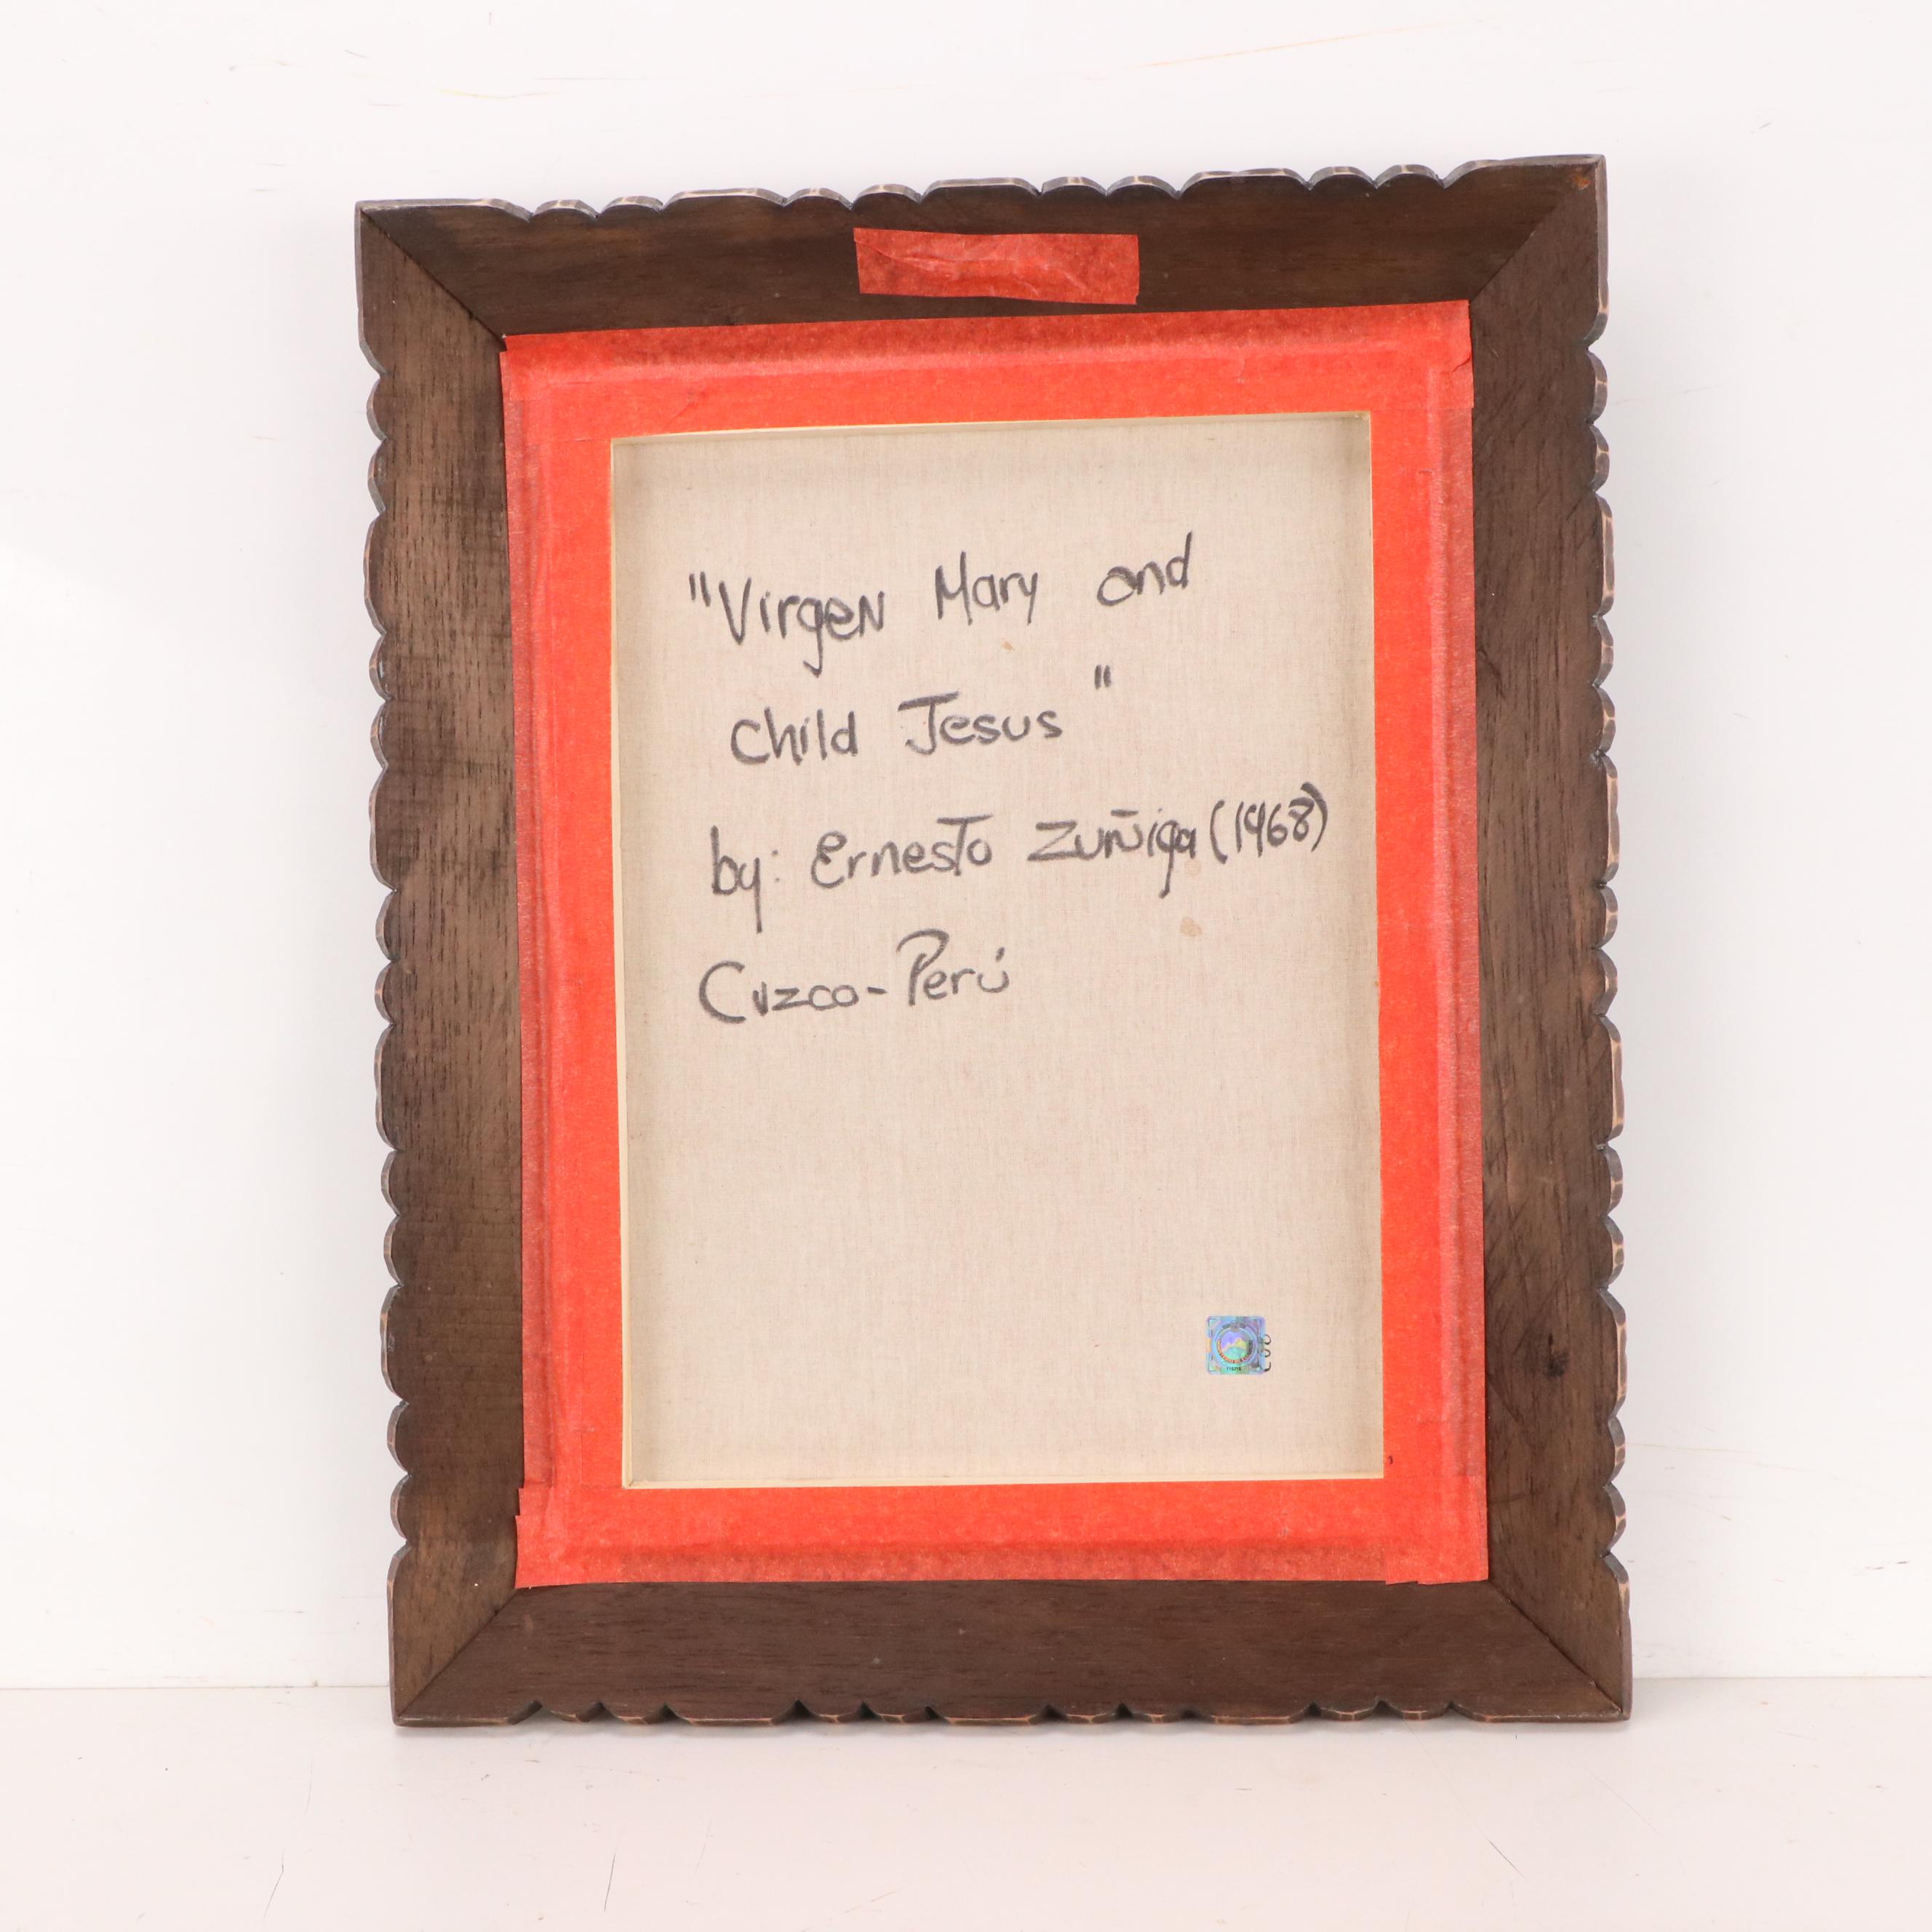 "Virgen Mary and
Child Jesus"
by: Ernesto Zuñiga (1968)
Cuzco-Perú